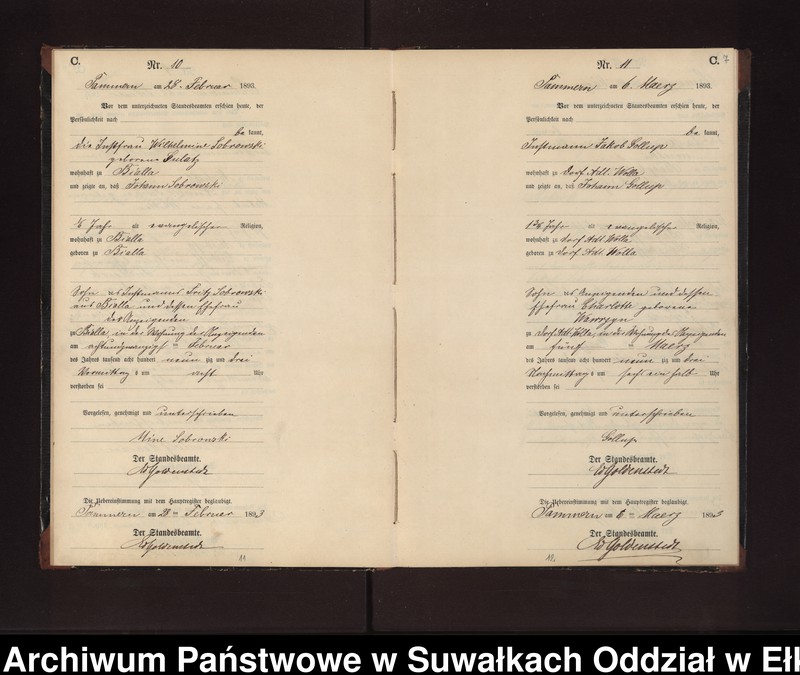 C.
Nr. 10
Sammern am 28. Februar 1893.
Vor dem unterzeichneten Standesbeamten erschien heute, der
Persönlichkeit nach
be kannt,
die Instfrau Wilhelmine Sobrowski
geborene
wohnhaft zu Bialla
und zeigte an, daß Johann Sobrowski
1/2 Jahr alt evangelischer Religion,
wohnhaft zu Bialla
geboren zu Bialla
Sohn des Instmanns Sobrowski
aus Bialla und dessen Ehefrau
der Anzeigenden
zu Bialla, in der Wohnung der Anzeigenden
am achtundzwanzigsten Februar
des Jahres tausend acht hundert neun zig und drei
Vormittags um acht Uhr
verstorben sei
Vorgelesen, genehmigt und unterschrieben
Mine Sobrowski
Der Standesbeamte.
Goldenstedt
Die Uebereinstimmung mit dem Hauptregister beglaubigt.
Sammern am 28 ten Februar 1893
Der Standesbeamte.
Goldenstedt
11
C. 7
Nr. 11
Sammern am 6. Maerz 1893.
Vor dem unterzeichneten Standesbeamten erschien heute, der
Persönlichkeit nach
be kannt,
Instmann Jakob Gollup
wohnhaft zu Dorf Adl. Wolla
und zeigte an, daß Johann Gollup
Jahr alt evangelischer Religion,
wohnhaft zu Dorf Adl. Wolla
geboren zu Dorf Adl. Wolla
Sohn des Anzeigenden und dessen
Ehefrau Charlotte geborene
zu Dorf Adl. Wolla, in der Wohnung des Anzeigenden
am fünf ten Maerz
des Jahres tausend acht hundert neun zig und drei
Nachmittags um sechs ein halb Uhr
verstorben sei
Vorgelesen, genehmigt und unterschrieben
Gollup
Der Standesbeamte.
Goldenstedt
Die Uebereinstimmung mit dem Hauptregister beglaubigt.
Sammern am 6 ten Maerz 1893
Der Standesbeamte.
Goldenstedt
12.
Archiwum Państwowe w Suwałkach Oddział w Ełk